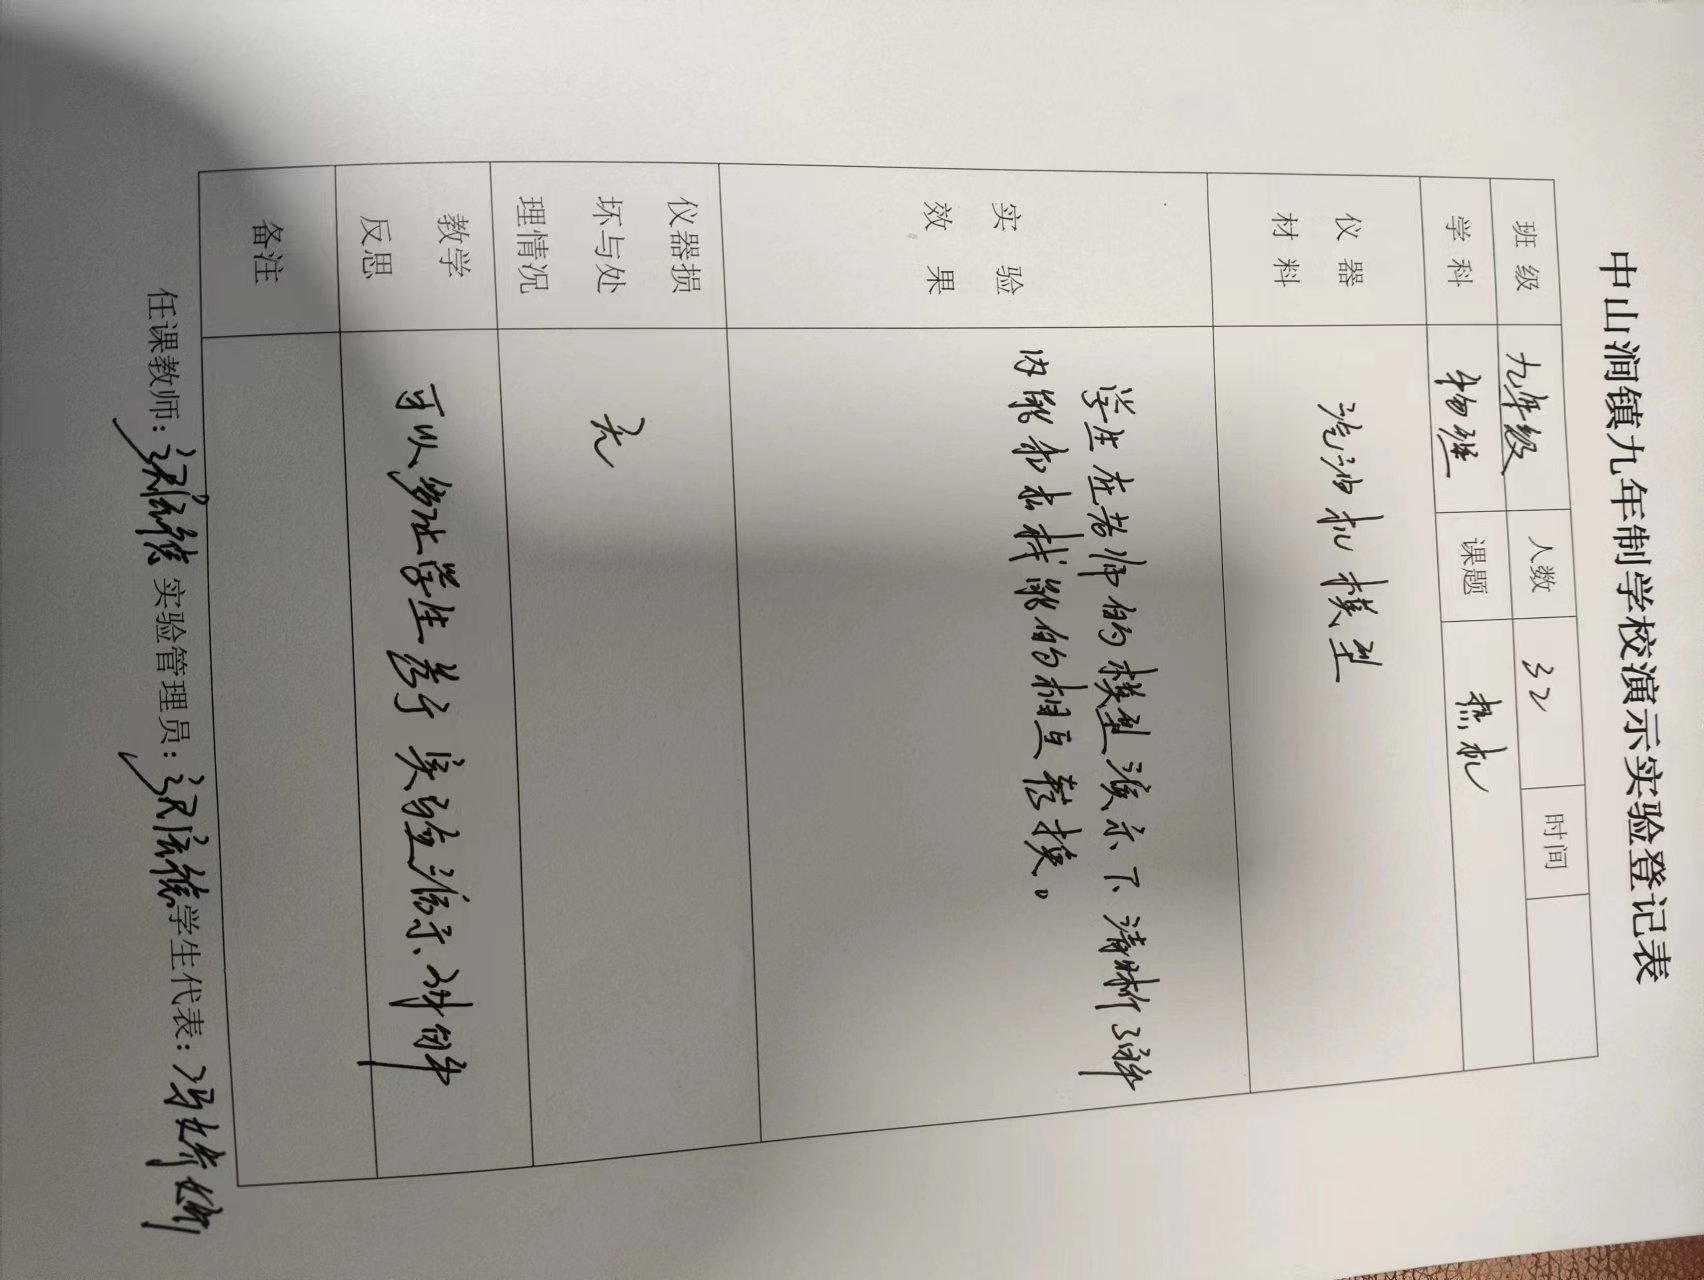 中山涧镇九年制学校演示实验登记表
班级 九年级 人数 32 时间
学科 物理 课题 热机
仪器
材料
汽油机模型
实验
效果
学生在老师的模型演示下清晰了解
内能和机械能的相互转换。
仪器损
坏与处
理情况
无
教学
反思
可以多让学生参于实验演示讲解
备注
任课教师: 实验管理员: 学生代表: 冯